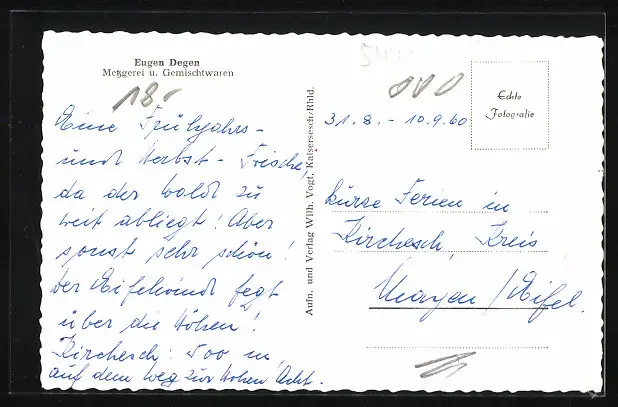 Eugen Degen
Metzgerei u. Gemischtwaren
18.-
Eine Frühjahrs-
und Herbst-Frische,
da der Wald zu
weit abliegt! Aber
sonst sehr schön!
Der Eifelwind fegt
über die Höhen!
Kirchesch: 500 m,
auf dem Weg zur Hohen Acht.
Aufn. und Verlag Wilh. Vogt, Kaisersesch/Rhld.
Echte
Fotografie
31.8. - 10.9.60
kurze Ferien in
Kirchesch, Kreis
Mayen / Eifel.